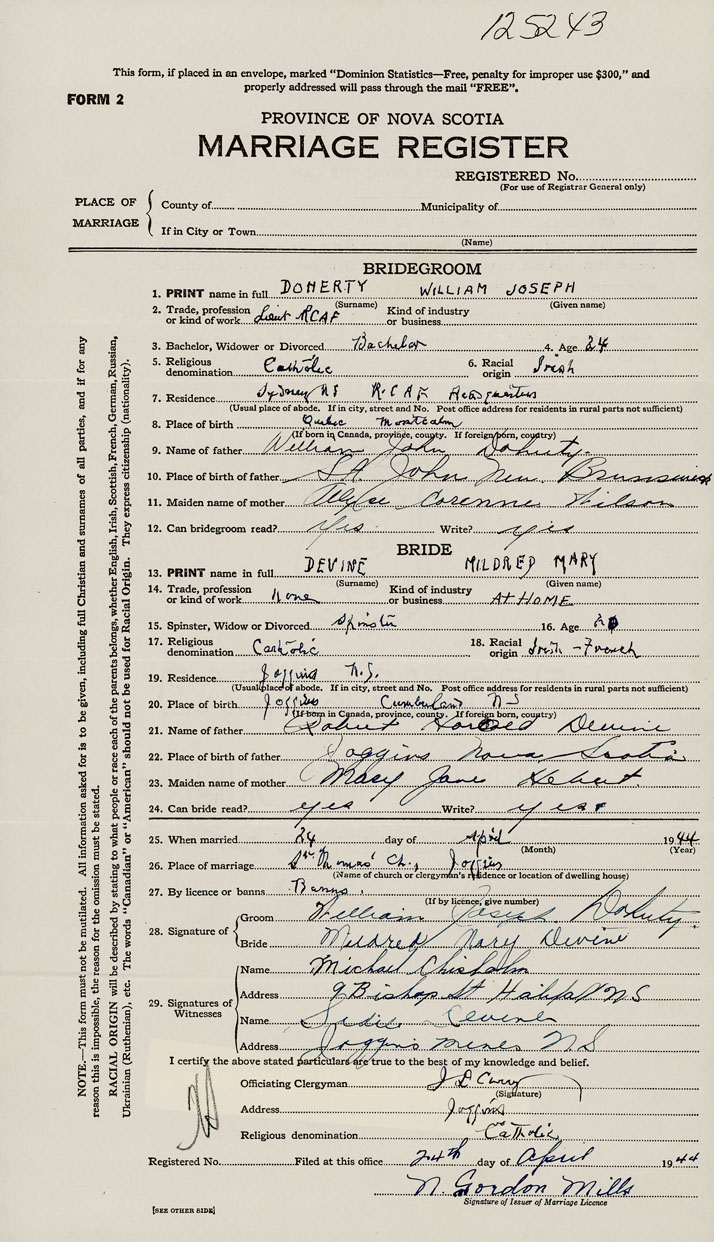 125243
This form, if placed in an envelope, marked "Dominion Statistics—Free, penalty for improper use $300," and
properly addressed will pass through the mail "FREE".
FORM 2
PROVINCE OF NOVA SCOTIA
MARRIAGE REGISTER
REGISTERED No.
(For use of Registrar General only)
PLACE OF MARRIAGE
County of Municipality of
If in City or Town
(Name)
BRIDEGROOM
1. PRINT name in full DOHERTY WILLIAM JOSEPH
(Surname) (Given name)
2. Trade, profession or kind of work Lieut RCAF Kind of industry or business
3. Bachelor, Widower or Divorced Bachelor 4. Age 24
5. Religious denomination Catholic 6. Racial origin Irish
7. Residence Sydney NS R.C.A.F Headquarters
(Usual place of abode. If in city, street and No. Post office address for residents in rural parts not sufficient)
8. Place of birth Quebec Montcalm
(If born in Canada, province, county. If foreign born, country)
9. Name of father William John Doherty
10. Place of birth of father St John New Brunswick
11. Maiden name of mother Corenne Wilson
12. Can bridegroom read? Yes Write? yes
BRIDE
13. PRINT name in full DEVINE MILDRED MARY
(Surname) (Given name)
14. Trade, profession or kind of work None Kind of industry or business AT HOME
15. Spinster, Widow or Divorced Spinster 16. Age
17. Religious denomination Catholic 18. Racial origin Irish - French
19. Residence Joggins N.S.
(Usual place of abode. If in city, street and No. Post office address for residents in rural parts not sufficient)
20. Place of birth Joggins Cumberland NS
(If born in Canada, province, county. If foreign born, country)
21. Name of father Robert Harold Devine
22. Place of birth of father Joggins Nova Scotia
23. Maiden name of mother Mary Jane Hebert
24. Can bride read? yes Write? yes
25. When married 24 day of April 1944
(Month) (Year)
26. Place of marriage St Thomas' Ch., Joggins
(Name of church or clergyman's residence or location of dwelling house)
27. By licence or banns Banns.
(If by licence, give number)
28. Signature of
Groom William Joseph Doherty
Bride Mildred Mary Devine
29. Signatures of Witnesses
Name Michael Chisholm
Address 9 Bishop St Halifax NS
Name Devine
Address Joggins mines NS
I certify the above stated particulars are true to the best of my knowledge and belief.
Officiating Clergyman
(Signature)
Address Joggins
Religious denomination Catholic
Registered No. Filed at this office 24th day of April 1944
N. Gordon Mills
Signature of Issuer of Marriage Licence
[SEE OTHER SIDE]
NOTE.—This form must not be mutilated. All information asked for is to be given, including full Christian and surnames of all parties, and if for any
reason this is impossible, the reason for the omission must be stated.
RACIAL ORIGIN will be described by stating to what people or race each of the parents belongs, whether English, Irish, Scottish, French, German, Russian,
Ukrainian (Ruthenian), etc. The words "Canadian" or "American" should not be used for Racial Origin. They express citizenship (nationality).